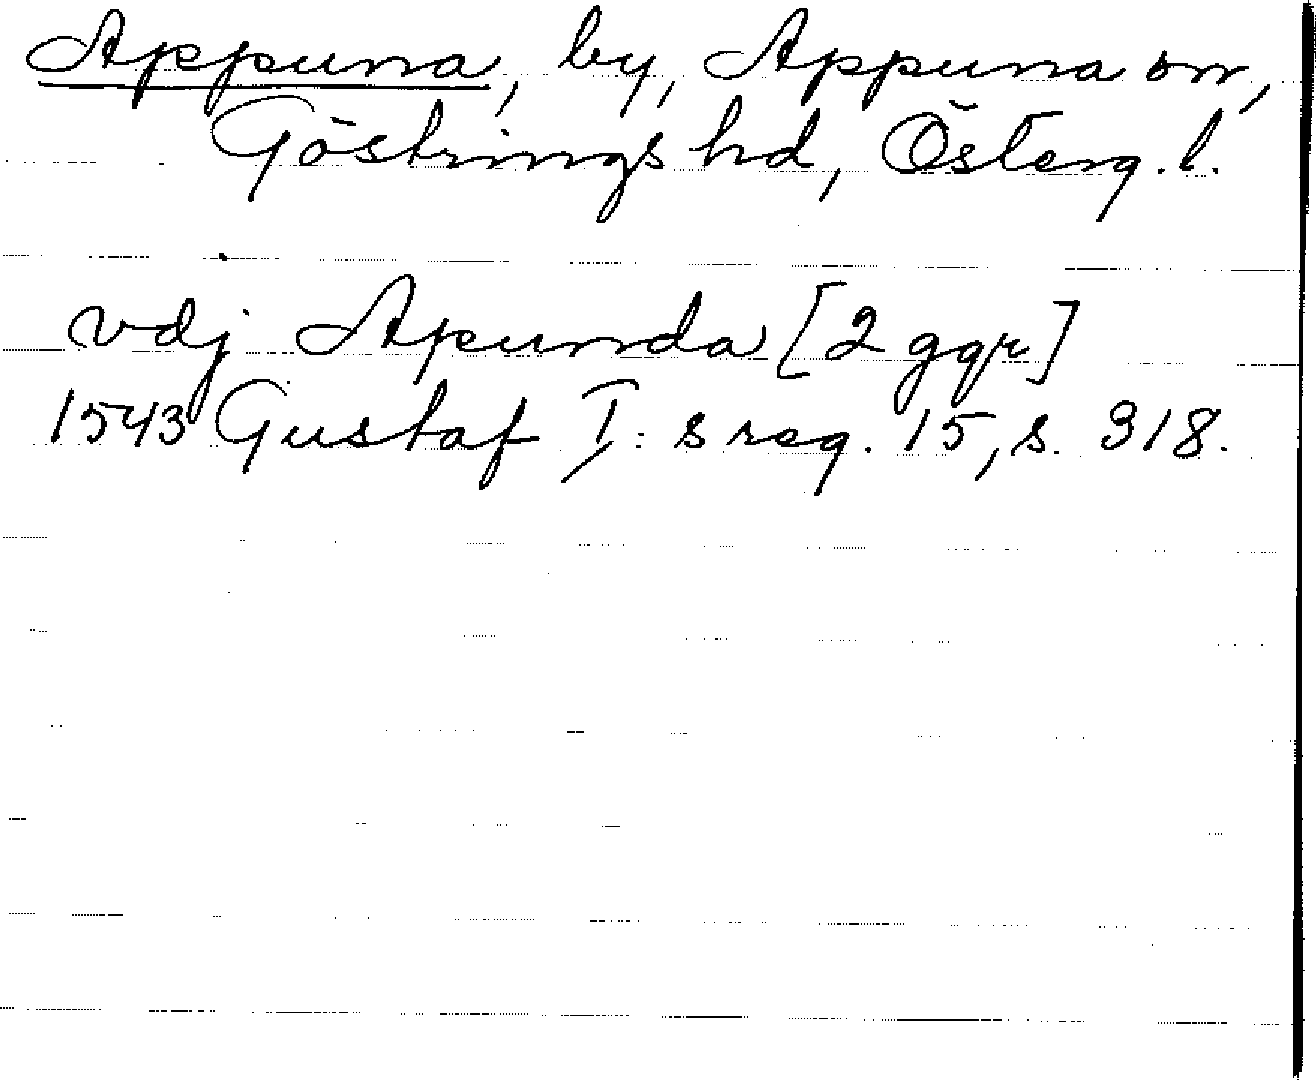 Appuna, by, Appuna sn,
Göstrings hd, Österg. l.
vdj Apunda [2 ggr]
1543 Gustaf I:s reg. 15, s. 318.